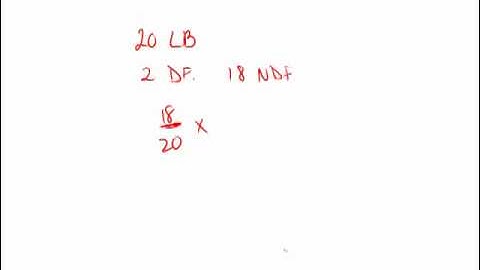 20 LB
2 DF. 18 NDF
18/20 x